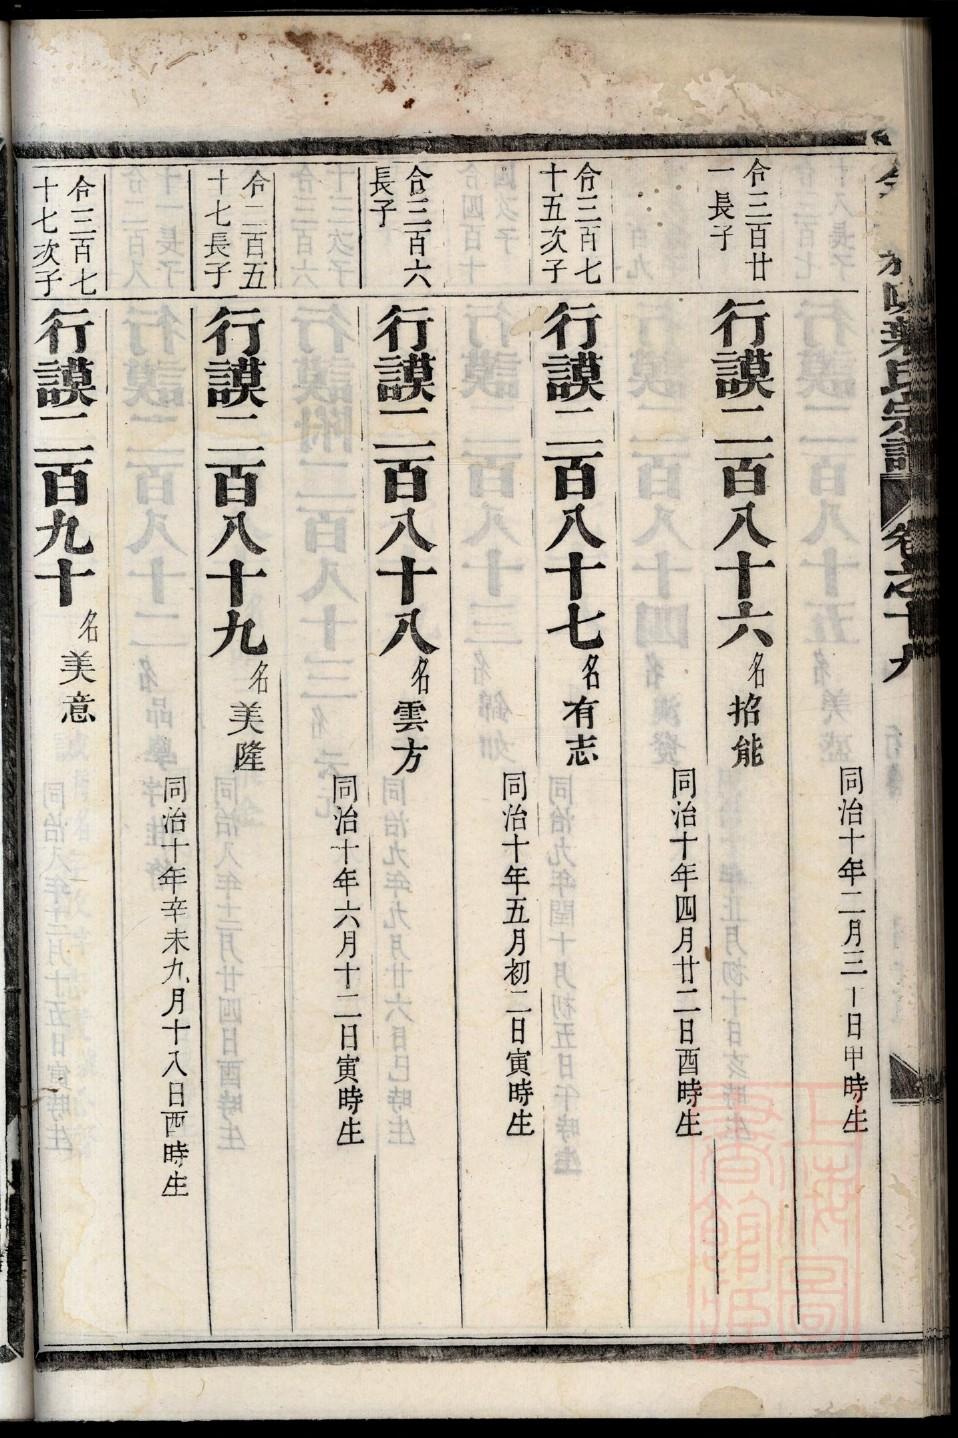 葉氏宗譜 卷之十九
同治十年二月三日甲時生
合三百廿
一長子
行謨二百八十六 名招能
同治十年四月廿二日酉時生
合三百七
十五次子
行謨二百八十七 名有志
同治十年五月初二日寅時生
合三百六
長子
行謨二百八十八 名雲方
同治十年六月十二日寅時生
合二百五
十七長子
行謨二百八十九 名美隆
同治十年辛未九月十八日酉時生
合三百七
十七次子
行謨二百九十 名美意